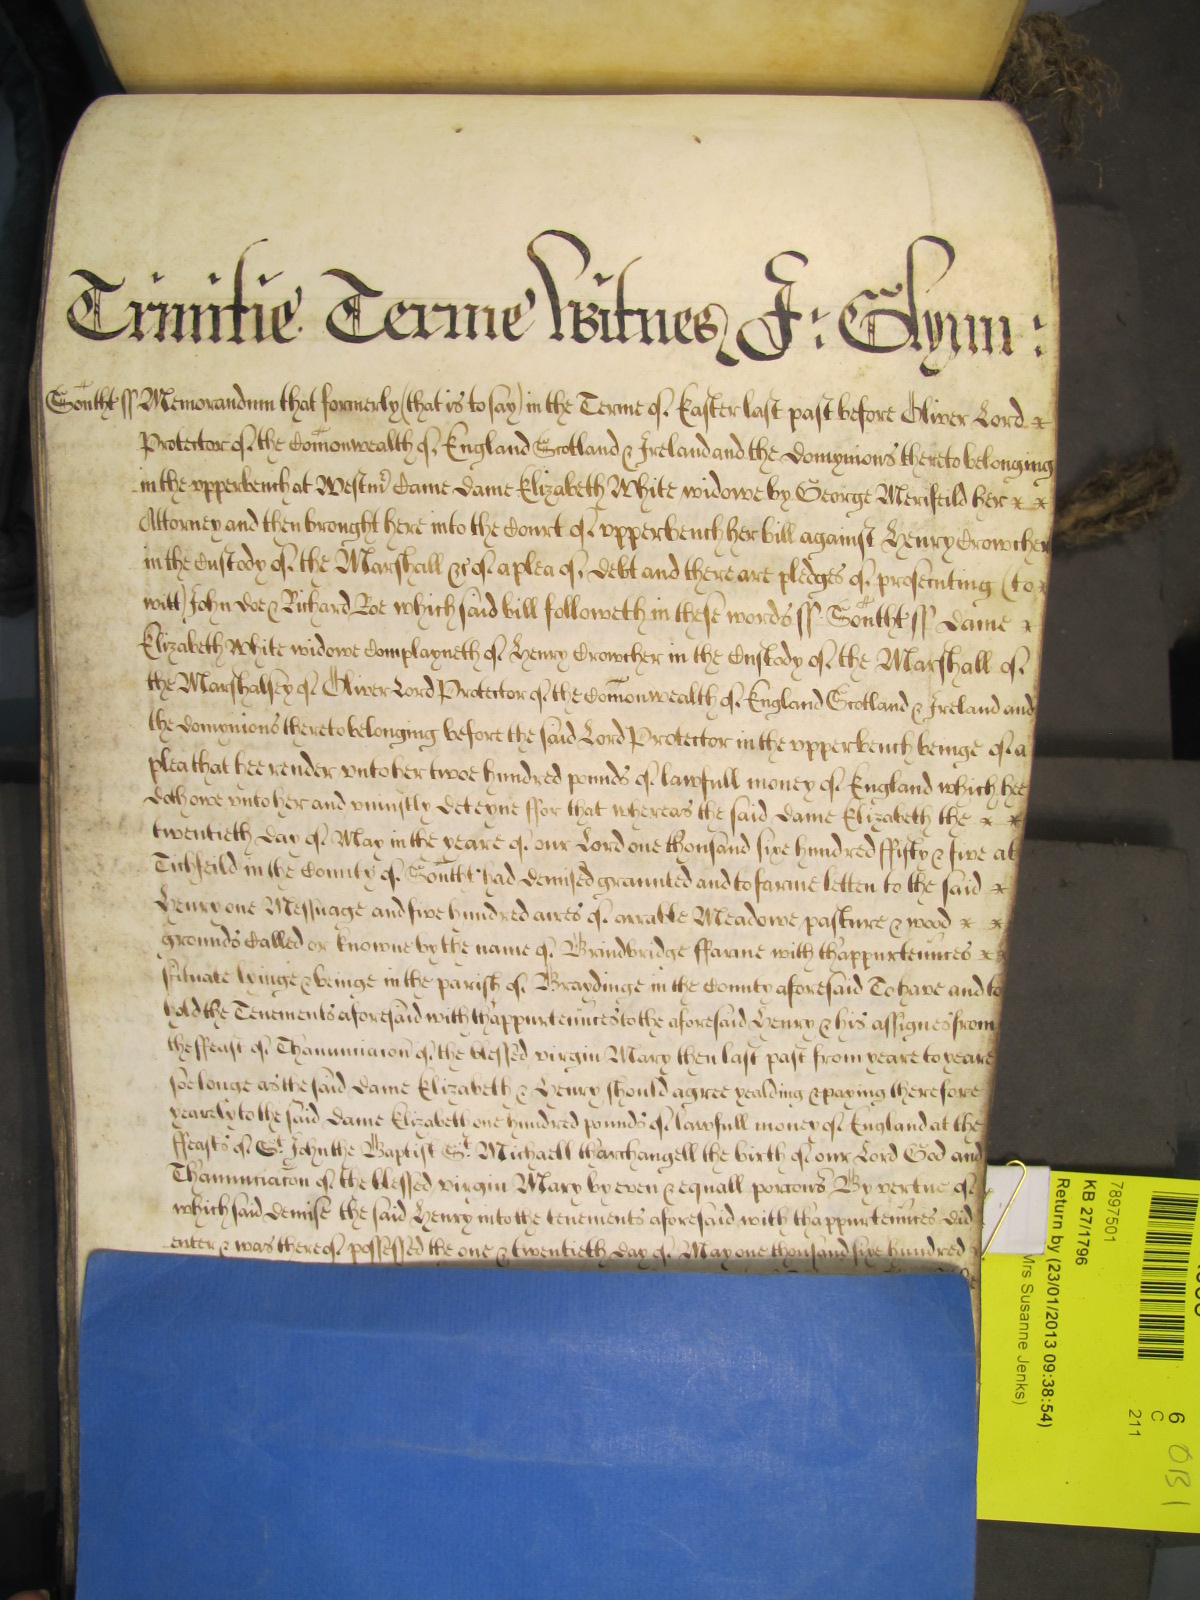 Trinitie Terme Witnes J: Glynn:
Southt ss Memorandum that formerly (that is to say) in the Terme of Easter last past before Oliver Lord
Protector of the Comonwealth of England Scotland & Ireland and the Domynions thereto belonging
in the vpperbench at Westmr Came Dame Elizabeth White widowe by George Merifeild her
Attorney and then brought here into the Court of vpperbench her bill against Henry Crowcher
in the Custody of the Marshall &c of a plea of Debt and there are pledges of prosecuting (to
witt) John Doe & Richard Roe which said bill followeth in these words ss Southt ss Dame
Elizabeth White widowe Complayneth of Henry Crowcher in the Custody of the Marshall of
the Marshalsey of Oliver Lord Protector of the Comonwealth of England Scotland & Ireland and
the Domynions thereto belonging before the said Lord Protector in the vpperbench beinge of a
plea that hee render vnto her twoe hundred pounds of lawfull money of England which hee
doth owe vnto her and vniustly deteyne ffor that whereas the said Dame Elizabeth the
twentieth day of May in the yeare of our Lord one thousand sixe hundred ffifty & five at
Tichfeild in the County of Southt had demised graunted and to farme letten to the said
Henry one Messuage and five hundred acres of arrable Meadowe pasture & wood
grounds Called or knowne by the name of Brindbridge ffarme with thappurtennces
scituate lyinge & beinge in the parish of Braydinge in the County aforesaid To have and to
hold the Tenements aforesaid with thappurtennces to the aforesaid Henry & his assignes from
the ffeast of Thanunciacon of the blessed virgin Mary then last past from yeare to yeare
soe longe as the said Dame Elizabeth & Henry should agree yealding & paying therefore
yearely to the said Dame Elizabeth one hundred pounds of lawfull money of England at the
ffeasts of St John the Baptist St Michaell tharchangell the birth of our Lord God and
Thanunciacon of the blessed virgin Mary by even & equall porcons By vertue of
which said demise the said Henry into the tenements aforesaid with thappurtennces did
enter & was thereof possessed the one & twentieth day of May one thousand sixe hundred
7897501
KB 27/1796
Return by (23/01/2013 09:38:54)
Mrs Susanne Jenks)
6
C
211
OB1